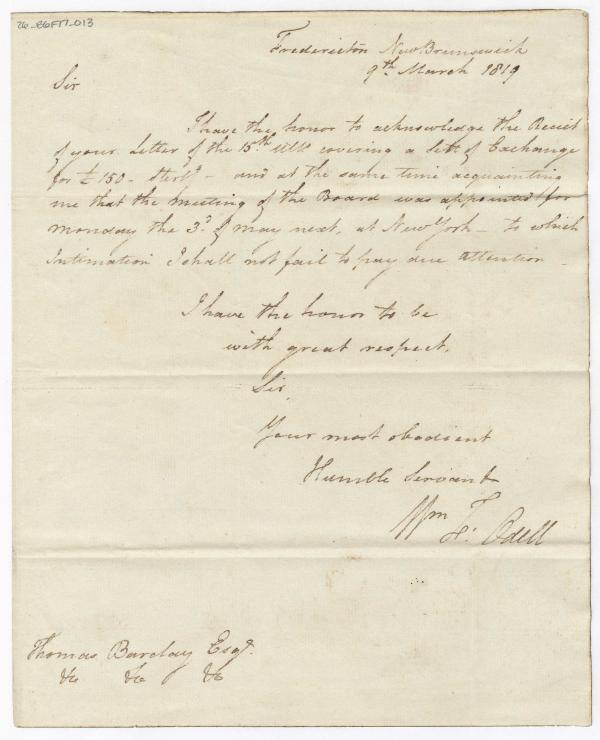 26-E6F17-013
Fredericton New Brunswick
9th March 1819
Sir
I have the honor to acknowledge the Receit
of your Letter of the 15th Ulto covering a Sett of Exchange
for £150 - Sterlg - and at the same time acquainting
me that the meeting of the Board was appointed for
Monday the 3d of May next, at New York - to which
Intimation I shall not fail to pay due attention -
I have the honor to be
with great respect,
Sir,
Your most obedient
Humble Servant
Wm F: Odell
Thomas Barclay Esqr.
&c &c &c